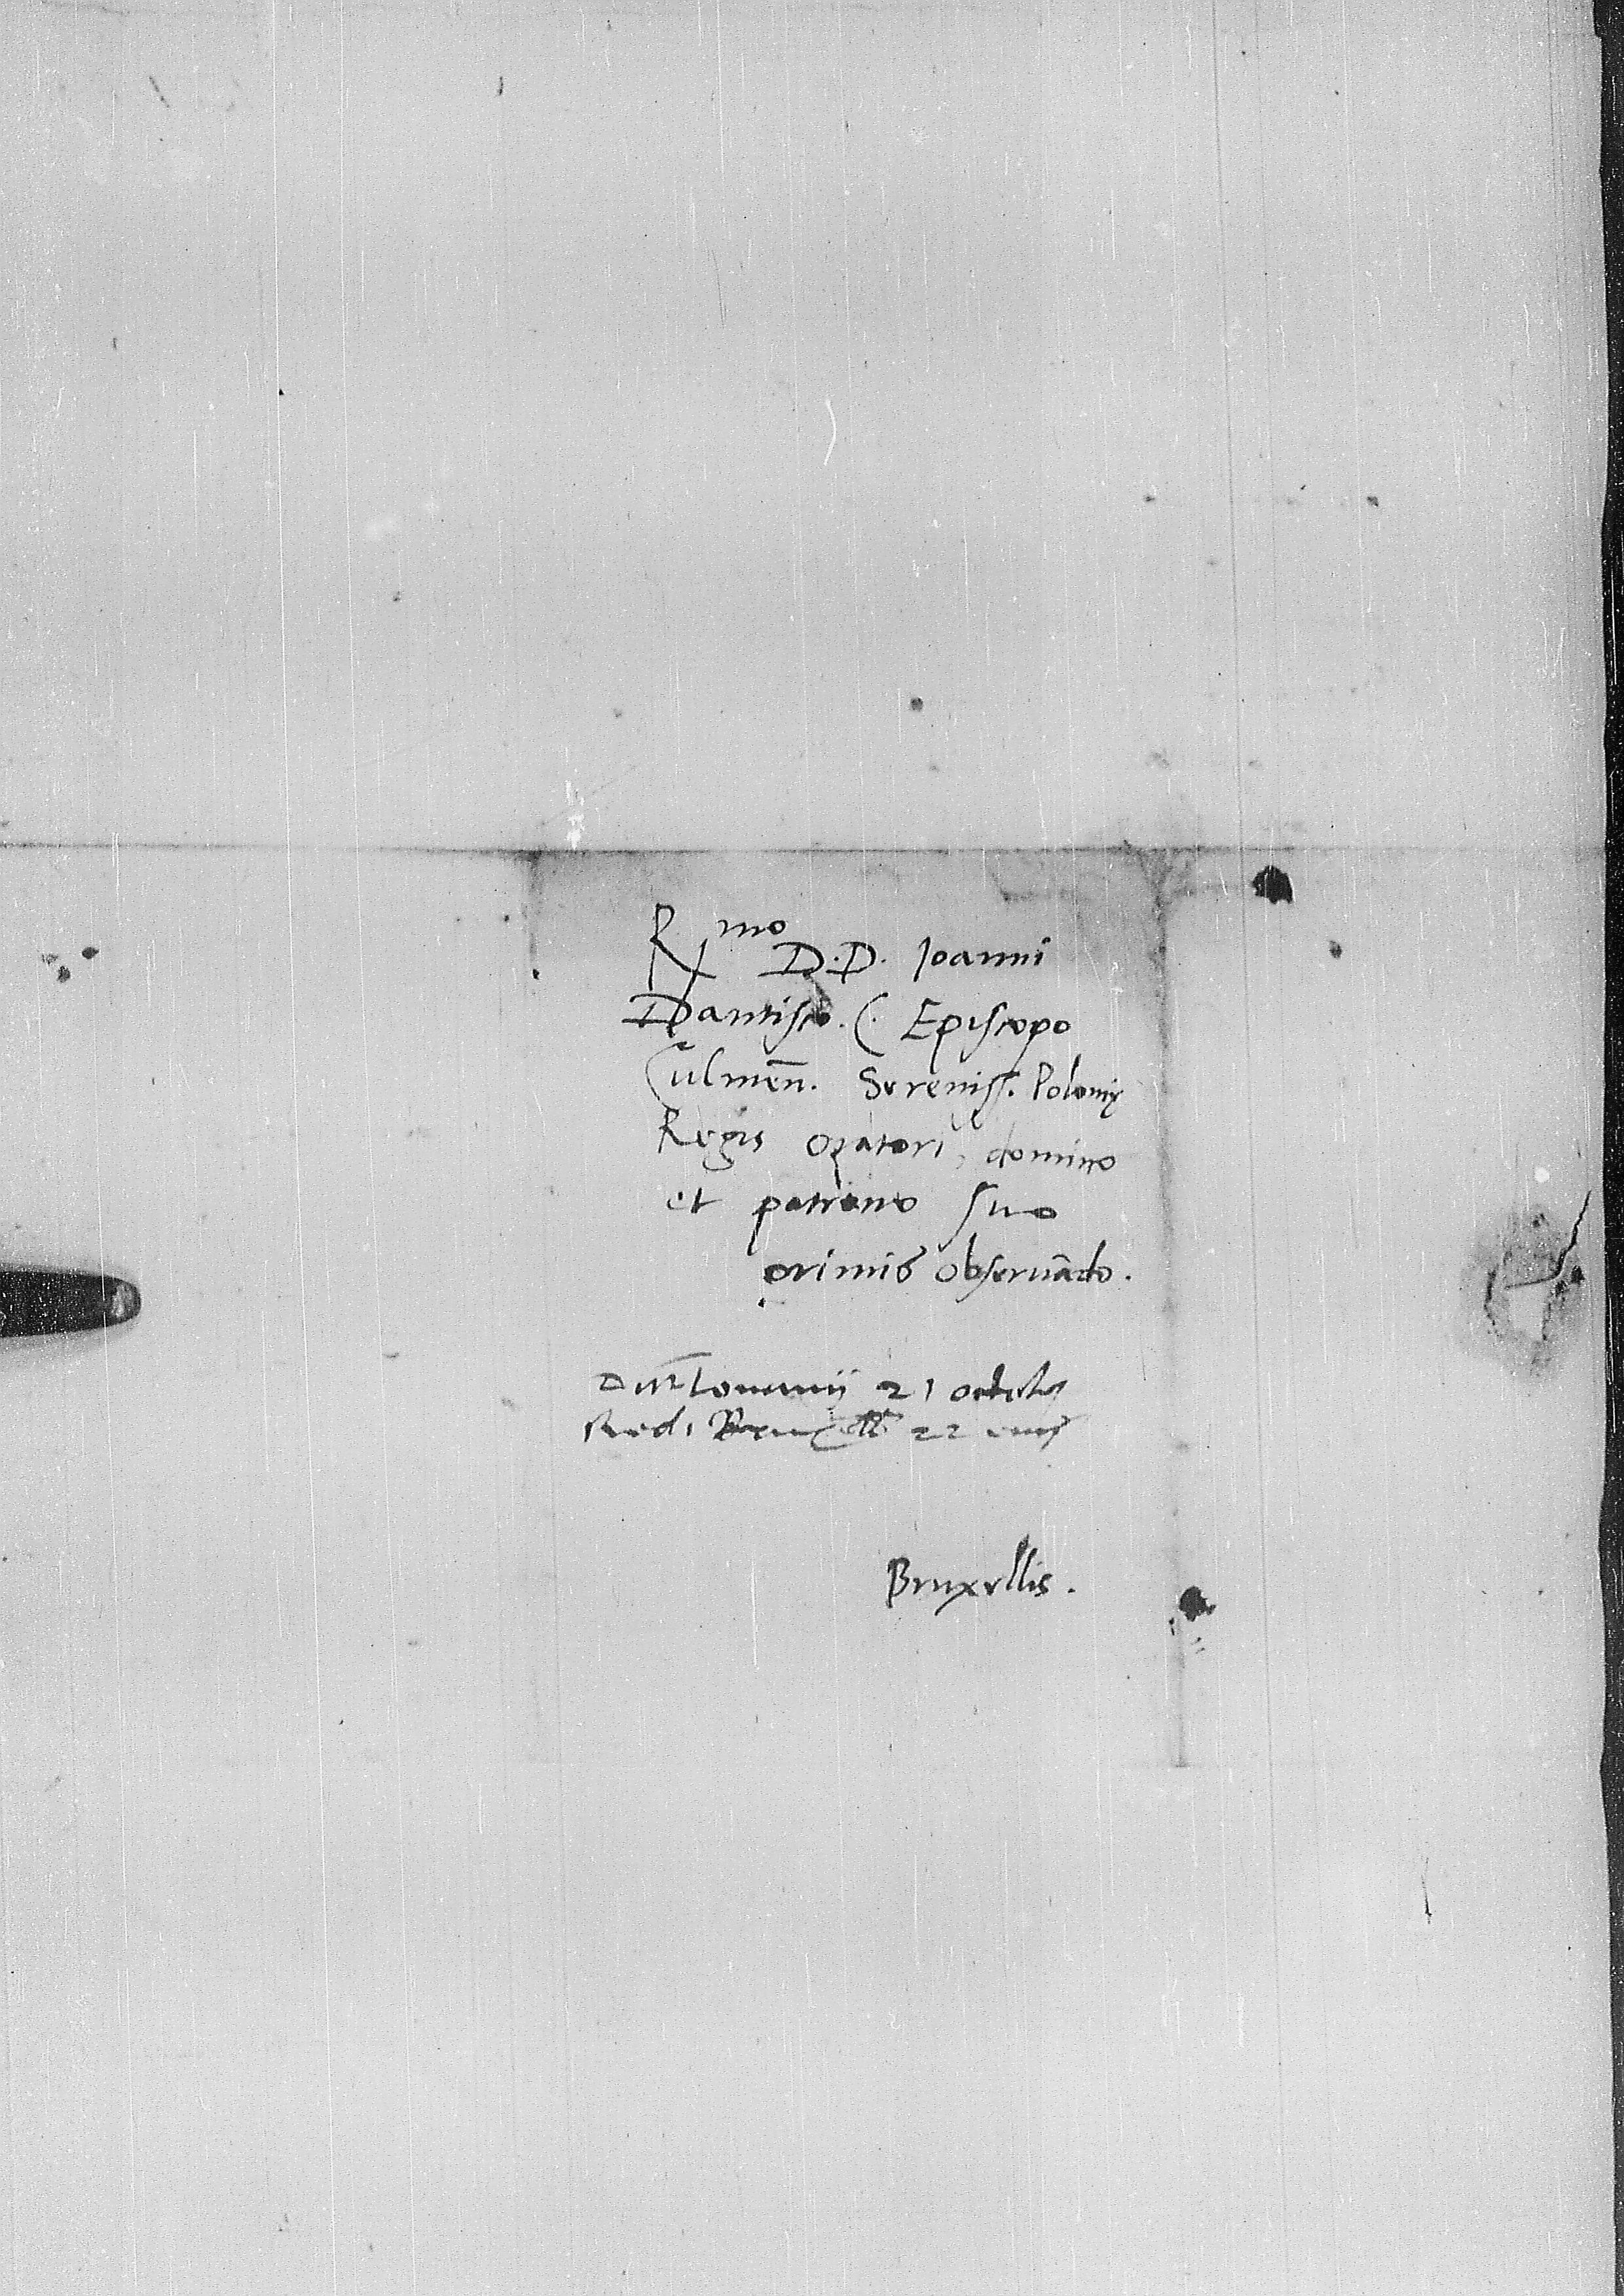 Rmo D.D. Ioanni
Dantisco. C. Episcopo
Culmeñ. Sereniss. Polonię
Regis oratori, domino
et patrono suo
primis observãdo.
Lovanij 21 octobr
Red. Bruxell 22 eius
Bruxellis.